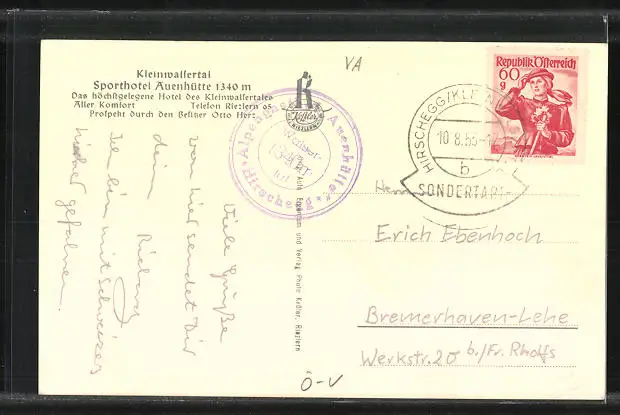 VA
Kleinwalsertal
Sporthotel Auenhütte 1340 m
Das höchstgelegene Hotel des Kleinwalsertales
Aller Komfort Telefon Riezlern 65
Prospekt durch den Besitzer Otto Herz
Auenhütte
Hirschegg
Keßler
RIEZLERN
Republik Österreich
60
g
HIRSCHEGG/KLEIN
10.8.55
b
SONDERTARI
Viele Grüße
von hier sendet Dir
dein
Ich bin mit Schweizer
hierher gefahren.
Eigentum und Verlag Photo Keßler, Riezlern
Herrn
Erich Ebenhoch
Bremerhaven-Lehe
Werkstr. 20 b./Fr. Rholfs
Ö-V